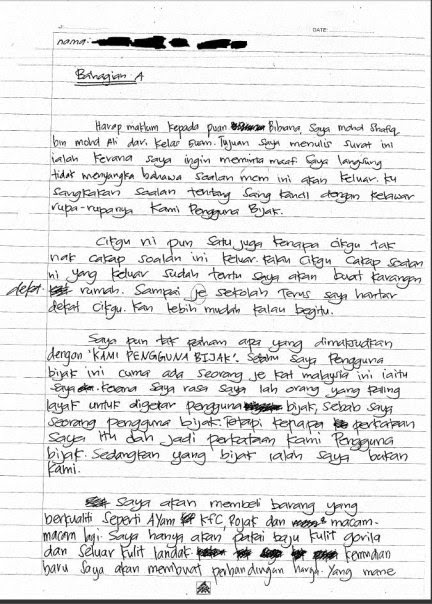 DATE:
nama:
Bahagian A
Harap maklum kepada puan Bibiana, Saya mohd Shafiq
bin mohd Ali dari kelas Enam. Tujuan saya menulis surat ini
ialah kerana saya ingin meminta maaf. Saya langsung
tidak menyangka bahawa soalan mcm ini akan keluar. ku
sangkakan soalan tentang Sang kancil dengan kelawar
rupa-rupanya Kami Pengguna Bijak.
Cikgu ni pun satu juga kenapa cikgu tak
nak cakap soalan ini keluar. Kalau cikgu cakap soalan
ni yang keluar sudah tentu saya akan buat karangan
dekat rumah. Sampai je sekolah terus saya hantar
dekat cikgu. Kan lebih mudah kalau begitu.
Saya pun tak paham apa yang dimaksudkan
dengan "KAMI PENGGUNA BIJAK". Setahu saya pengguna
bijak ini cuma ada seorang je kat malaysia ini iaitu
saya. Kerana saya rasa saya lah orang yang paling
layak untuk digelar pengguna bijak, sebab saya
seorang pengguna bijak. Tetapi kenapa perkataan
saya itu dah jadi perkataan kami pengguna
bijak. Sedangkan yang bijak ialah saya bukan
kami.
Saya akan membeli barang yang
berkualiti seperti Ayam KFC, Rojak dan macam-
macam lagi. Saya hanya akan pakai baju kulit gorila
dan seluar kulit landak kemudian
baru saya akan membuat perbandingan harga. Yang mane